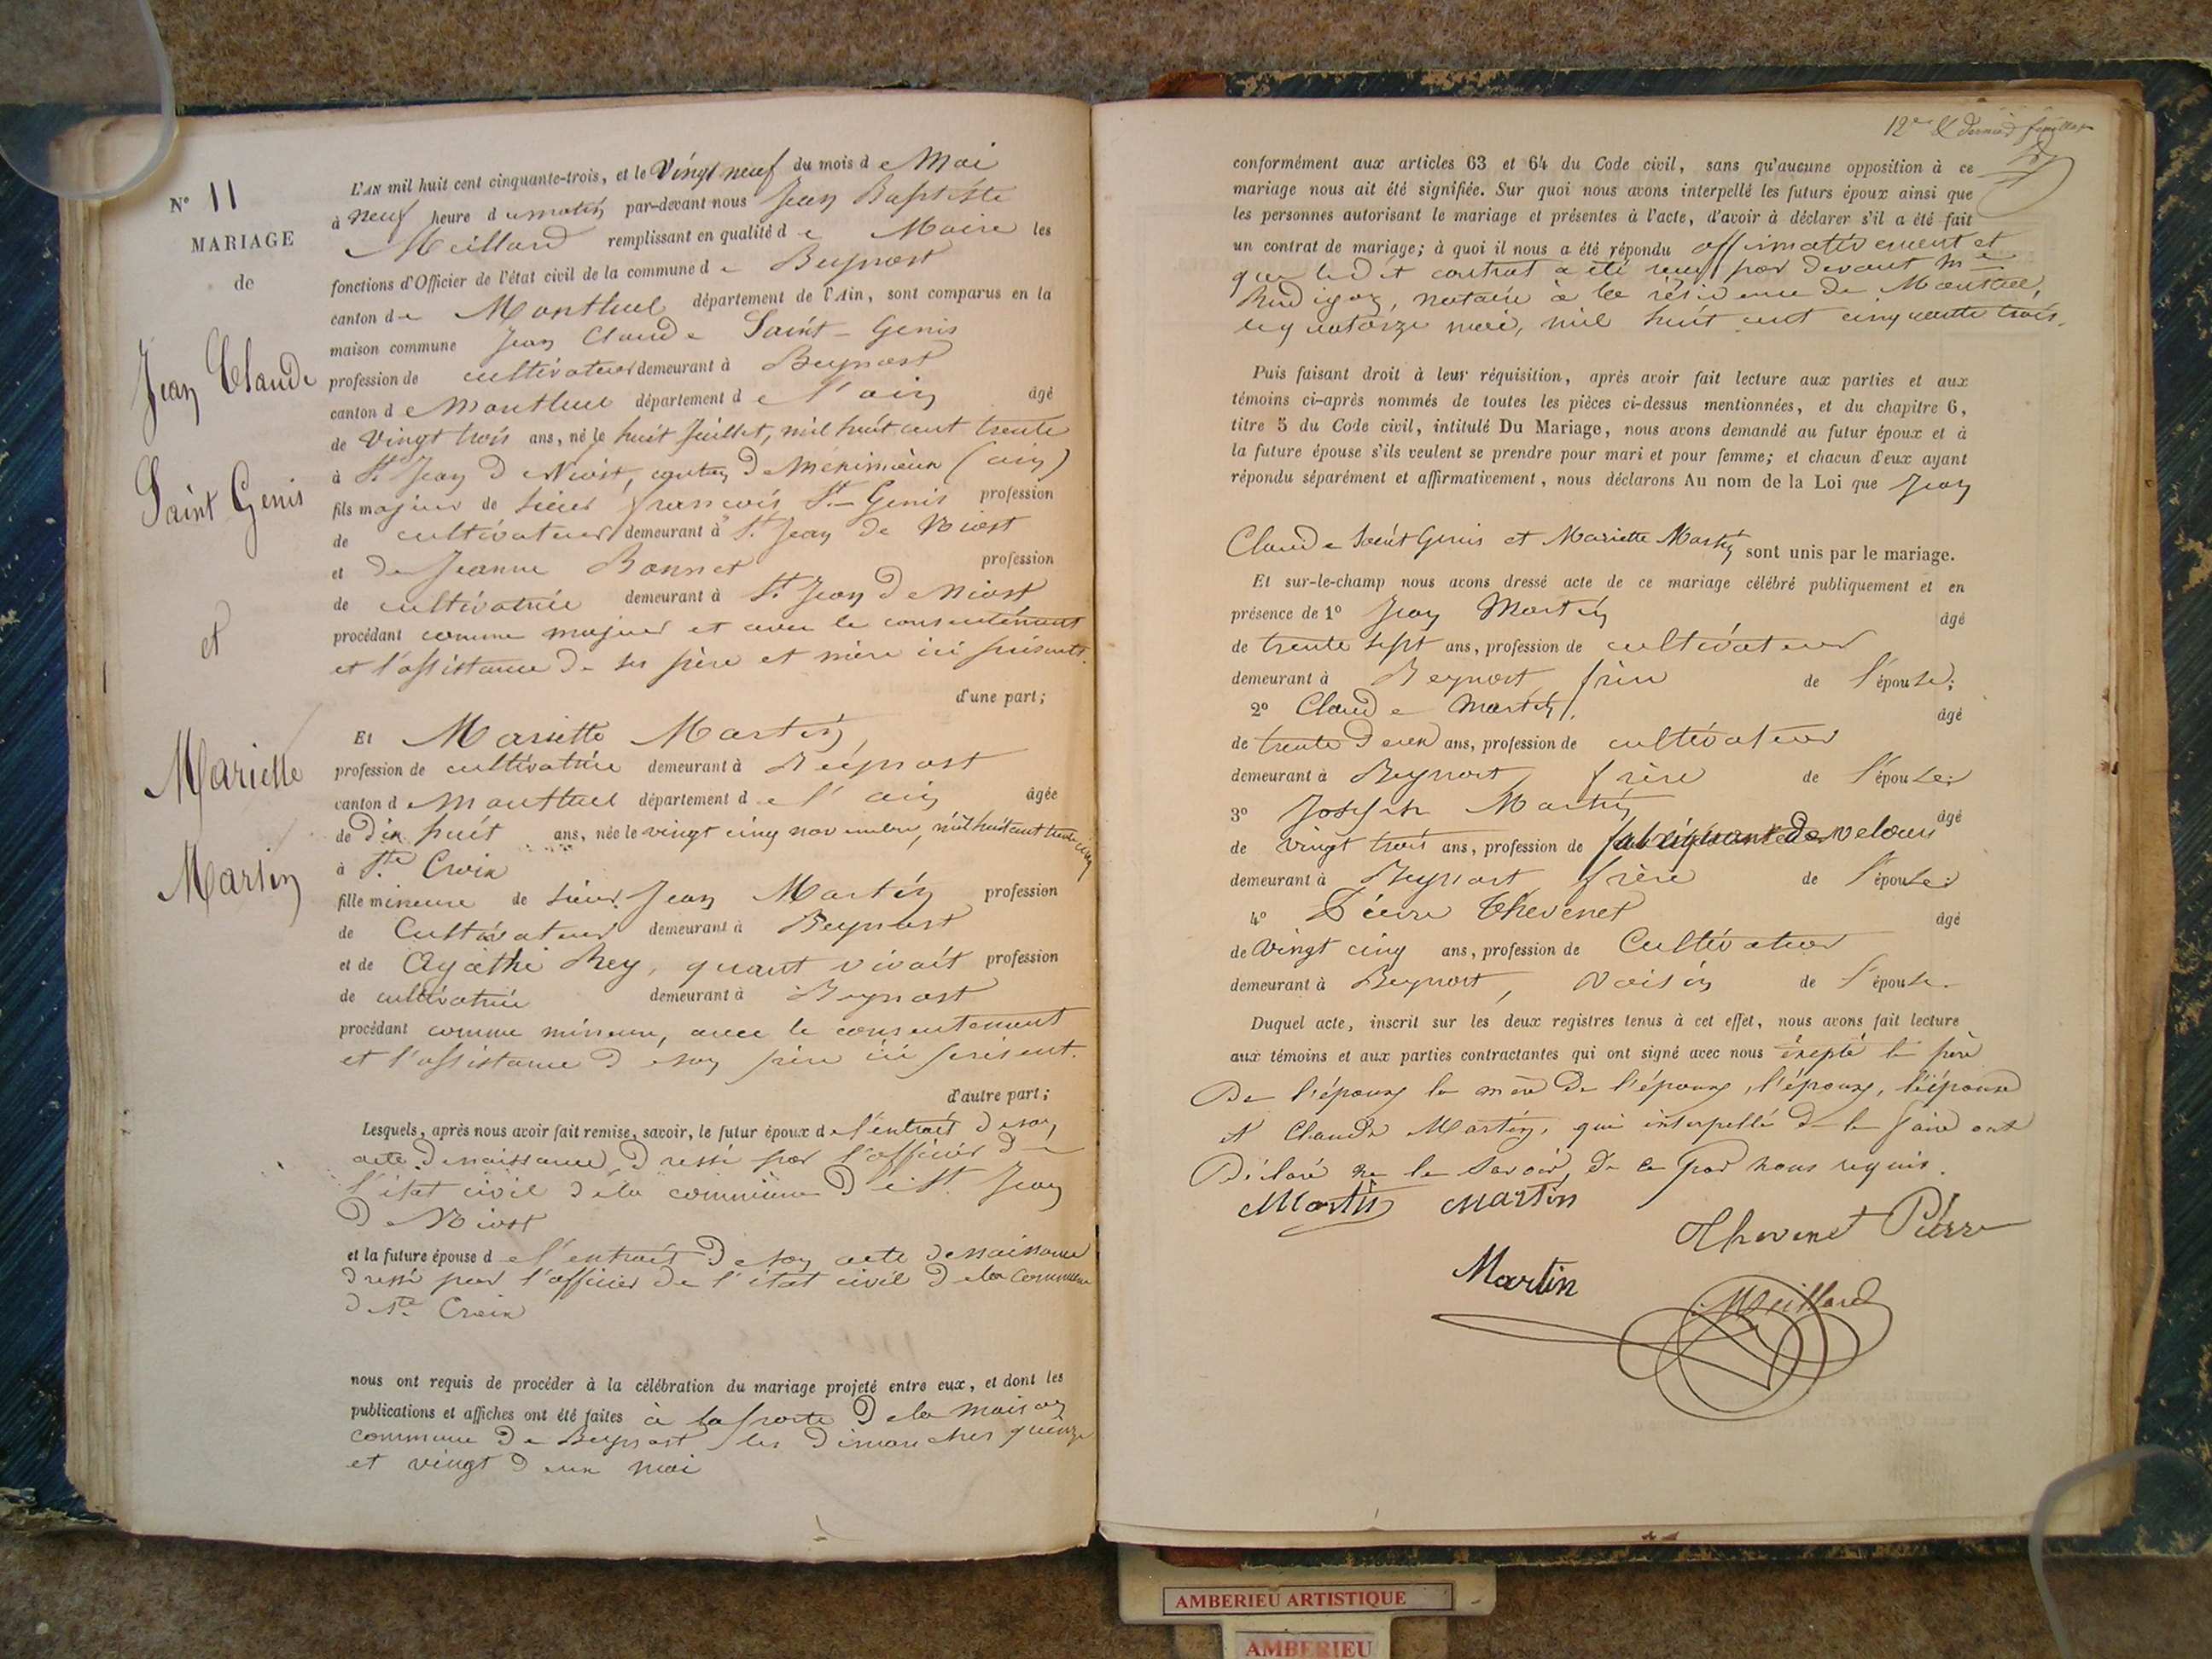 N° 11
MARIAGE
de
Jean Claude
Saint Genis
et
Mariette
Martin
L'AN mil huit cent cinquante-trois, et le Vingt neuf du mois de Mai
à neuf heure du matin par-devant nous Jean Baptiste
Meillard remplissant en qualité de Maire les
fonctions d'Officier de l'état civil de la commune de Beynost
canton de Montluel département de l'Ain, sont comparus en la
maison commune Jean Claude Saint-Genis
profession de cultivateur demeurant à Beynost
canton de Montluel département de l'ain âgé
de Vingt trois ans, né le huit Juillet, mil huit cent trente
à St Jean de Niost, canton de Meximieux (ain)
fils majeur de sieur françois St-Genis profession
de cultivateur demeurant à St Jean de Niost
et de Jeanne Bonnet profession
de cultivatrice demeurant à St Jean de Niost
procédant comme majeur et avec le consentement
et l'assistance de ses père et mère ici présents.
d'une part;
Et Mariette Martin,
profession de cultivatrice demeurant à Beynost
canton de Montluel département de l'ain âgée
de dix huit ans, née le vingt cinq novembre, mil huit cent trente cinq
à Ste Croix
fille mineure de sieur Jean Martin profession
de Cultivateur demeurant à Beynost
et de Agathe Rey, quant vivait profession
de cultivatrice demeurant à Beynost
procédant comme mineure, avec le consentement
et l'assistance de son père ici présent.
d'autre part;
Lesquels, après nous avoir fait remise, savoir, le futur époux de l'extrait de son
acte de naissance, dressé par l'officier de
l'état civil de la commune de St Jean
de Niost
et la future épouse de l'extrait de son acte de naissance
dressé par l'officier de l'état civil de la commune
de Ste Croix
nous ont requis de procéder à la célébration du mariage projeté entre eux, et dont les
publications et affiches ont été faites à la porte de la maison
commune de Beynost les dimanches quinze
et vingt deux mai
12me & dernier feuillet
conformément aux articles 63 et 64 du Code civil, sans qu'aucune opposition à ce
mariage nous ait été signifiée. Sur quoi nous avons interpellé les futurs époux ainsi que
les personnes autorisant le mariage et présentes à l'acte, d'avoir à déclarer s'il a été fait
un contrat de mariage; à quoi il nous a été répondu affirmativement et
que ledit contrat a été reçu par devant Me
notaire à la résidence de Montluel,
le quatorze mai, mil huit cent cinquante trois.
Puis faisant droit à leur réquisition, après avoir fait lecture aux parties et aux
témoins ci-après nommés de toutes les pièces ci-dessus mentionnées, et du chapitre 6,
titre 5 du Code civil, intitulé Du Mariage, nous avons demandé au futur époux et à
la future épouse s'ils veulent se prendre pour mari et pour femme; et chacun d'eux ayant
répondu séparément et affirmativement, nous déclarons Au nom de la Loi que Jean
Claude Saint Genis et Mariette Martin sont unis par le mariage.
Et sur-le-champ nous avons dressé acte de ce mariage célébré publiquement et en
présence de 1° Jean Martin âgé
de trente sept ans, profession de cultivateur
demeurant à Beynost frère de l'épouse;
2° Claude Martin, âgé
de trente deux ans, profession de cultivateur
demeurant à Beynost, frère de l'épouse;
3° Joseph Martin âgé
de vingt trois ans, profession de fabriquant de velours
demeurant à Beynost frère de l'épouse;
4° Pierre Thevenet âgé
de Vingt cinq ans, profession de Cultivateur
demeurant à Beynost, Voisin de l'épouse.
Duquel acte, inscrit sur les deux registres tenus à cet effet, nous avons fait lecture
aux témoins et aux parties contractantes qui ont signé avec nous éxepté le père
de l'époux la mère de l'époux, l'époux, l'épouse
et Claude Martin, qui interpellé de le faire ont
Déclaré ne le savoir, de ce par nous requis.
Martin Martin
Thevenet Pierre
Martin
Meillard
AMBERIEU ARTISTIQUE
AMBERIEU